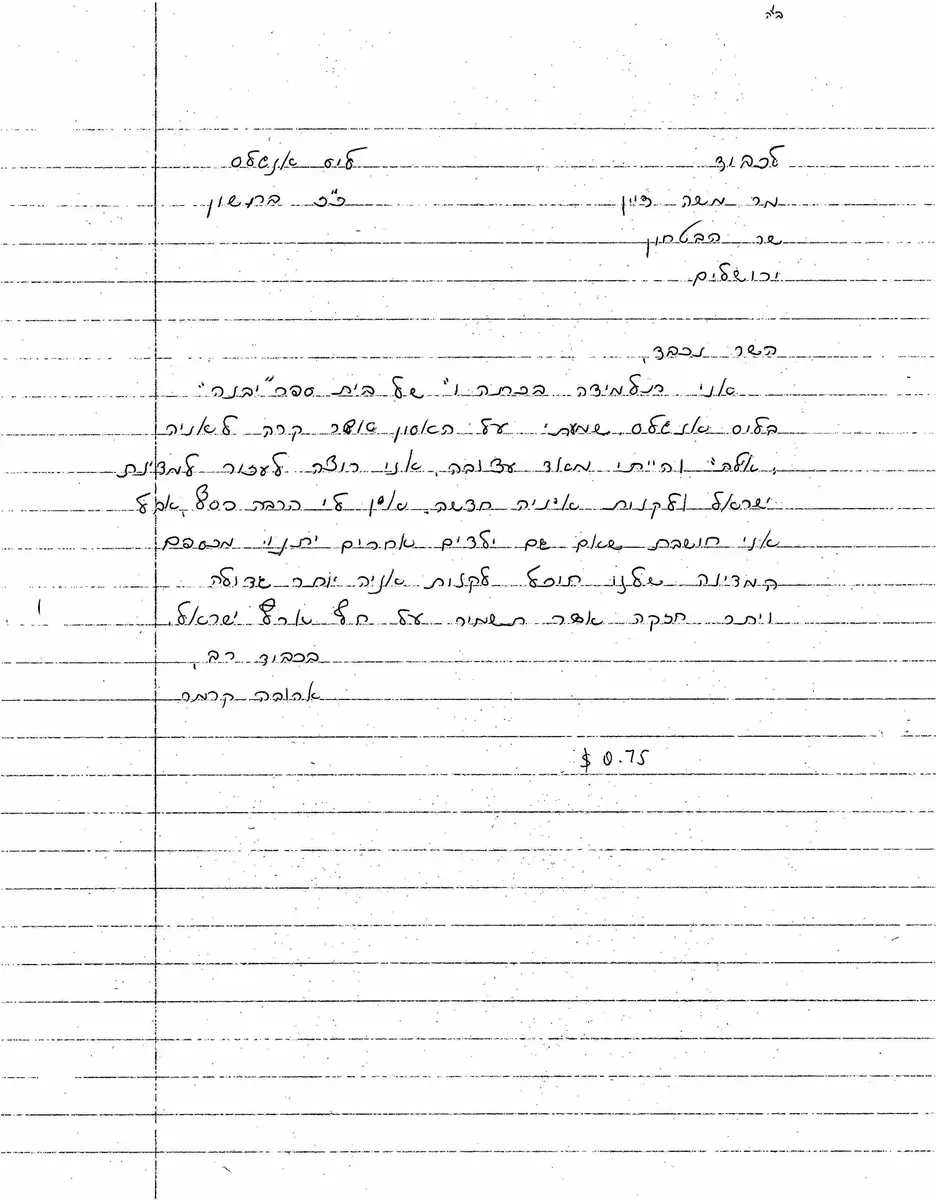 ב"ה
לכבוד
מר משה דיין
שר הבטחון
ירושלים
לוס אנגלס
כ"כ בחשון
השר נכבד,
אני תלמידה בכתה ו' של בית ספר "יבנה"
בלוס אנגלס. שמעתי על האסון אשר קרה לאניה
אילת והייתי מאד עצובה. אני רוצה לעזור למדינת
ישראל ולקנות אניה חדשה. אין לי הרבה כסף, אבל
אני חושבת שאם גם ילדים אחרים יתנו מכספם
המדינה שלנו תוכל לקנות אניה יותר גדולה
ויתר חזקה אשר תשמיר על חוף ארץ ישראל.
בכבוד רב,
אהובה קרמר
$ 0.75